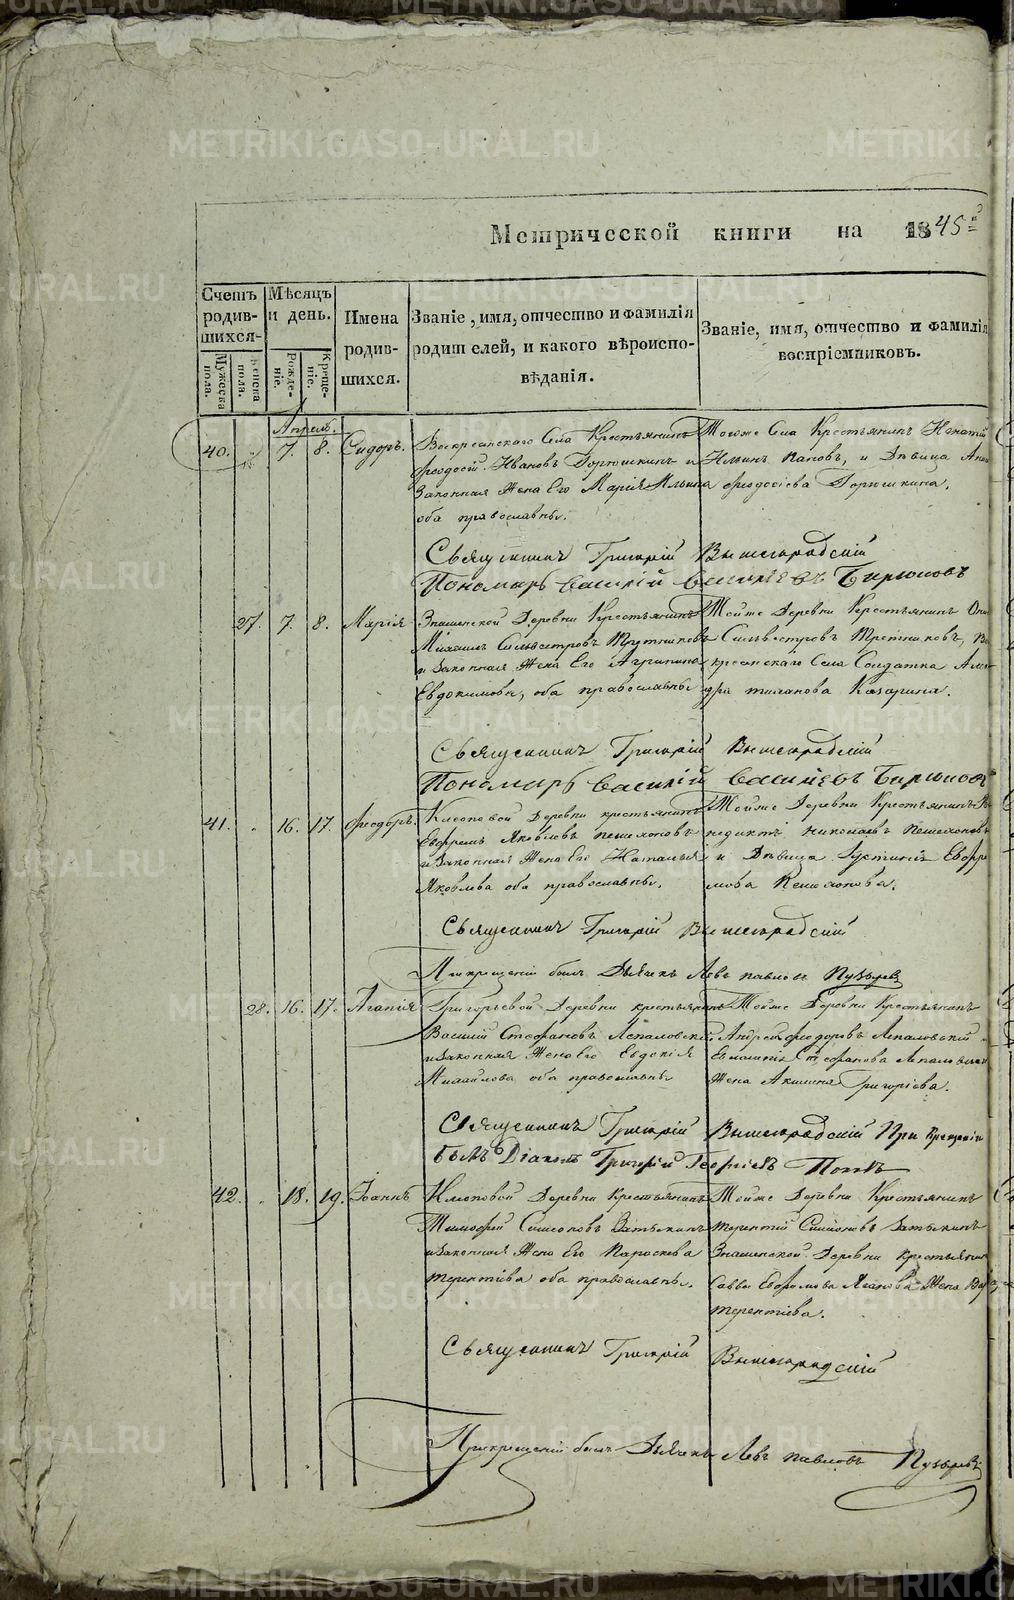 METRIKI.GASO-URAL.RU
Метрической книги на 1845й
Счетъ родившихся.
Мужеска пола.
Женска пола.
Мѣсяцъ и день.
Рожденіе.
Крещеніе.
Имена родившихся.
Званіе, имя, отчество и фамилія родителей, и какого вѣроисповѣданія.
Званіе, имя, отчество и фамилія воспріемниковъ.
Апрель.
40. 7. 8. Сидоръ.
Воскресенскаго Села Крестьянинъ
Феодосій Ивановъ Горюшкинъ и
Законная Жена Его Марія Ильина
оба православны.
Тогоже Села Крестьянинъ Игнатій
Ильинъ Пановъ, и Дѣвица
Феодосіева Горюшкина.
Священникъ Григорій Вышегородскій
Пономарь Василій Васильевъ Бирюковъ
27. 7. 8. Марія
Знаменской Деревни Крестьянинъ
Михаилъ Сильвестровъ
и Законная Жена Его Агрипина
Евдокимова, оба православны
Тойже Деревни Крестьянинъ
Сильвестровъ
кресенскаго Села Солдатка
Казарина.
Священникъ Григорій Вышегородскій
Пономарь Василій Васильевъ Бирюковъ
41. 16. 17. Феодоръ.
Деревни крестьянинъ
Евфремъ Яковлевъ
и Законная Жена Его Наталья
Яковлева оба православны.
Тойже Деревни Крестьянинъ
Николаевъ
и Дѣвица Іустинія
Священникъ Григорій Вышегородскій
При крещеніи былъ Дьячекъ Левъ Павловъ Пузыревъ
28. 16. 17. Агапія
Григорьевой Деревни крестьянинъ
Василій Стефановъ
и законная Жена его Евдокія
Михайлова оба православны
Тойже Деревни Крестьянинъ
Андрей Феодоровъ
Стефанова
Жена Акилина Григоріева.
Священникъ Григорій Вышегородскій При Крещеніи
былъ Діаконъ Григорій Георгіевъ Поповъ
42. 18. 19. Іоаннъ
Клоповой Деревни Крестьянинъ
Тимофей Симеоновъ
и законная Жена Его Параскева
Терентіева оба православны.
Тойже Деревни Крестьянинъ
Терентій Симеоновъ
Знаменской Деревни Крестьянина
Саввы Евфремова Жена
Терентіева.
Священникъ Григорій Вышегородскій
При крещеніи былъ Дьячекъ Левъ Павловъ Пузыревъ